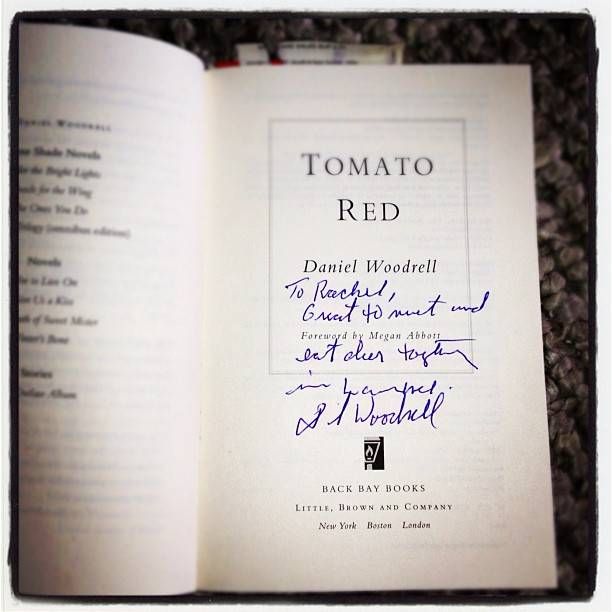 DANIEL WOODRELL
Shade Novels
the Bright Lights
for the Wing
Ones You Do
(omnibus edition)
Novels
to Live On
Us a Kiss
of Sweet Mister
Bone
Stories
Album
TOMATO
RED
Daniel Woodrell
To Rachel,
Great to meet and
Foreword by Megan Abbott
eat deer together
in
Woodrell
BACK BAY BOOKS
LITTLE, BROWN AND COMPANY
New York Boston London